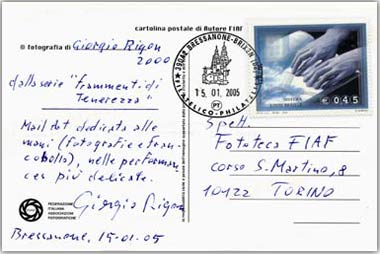 cartolina postale di Autore FIAF
© fotografia di Giorgio Rigon
2000
dalla serie "frammenti di
Tenerezza"
Mail Art dedicata alle
mani (fotografie e fran-
cobollo), nelle performan-
ces più delicate.
Giorgio Rigon
FEDERAZIONE
ITALIANA
ASSOCIAZIONI
FOTOGRAFICHE
Bressanone, 15-01-05
39042 BRESSANONE-BRIXEN
15.01.2005
PT
€ 0,45
Spett.
Fototeca FIAF
corso S. Martino, 8
10122 TORINO